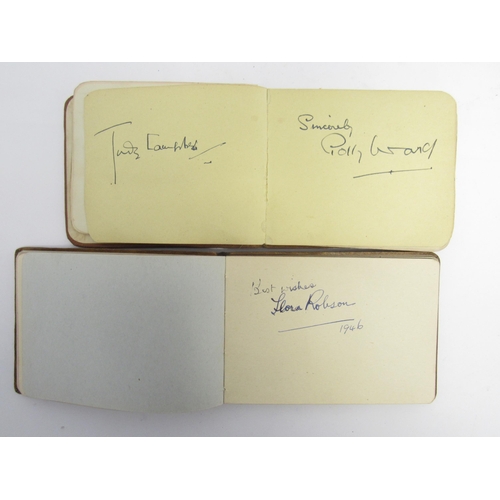 Judy Campbell
Sincerely
Polly Ward
Best wishes
Flora Robson
1946